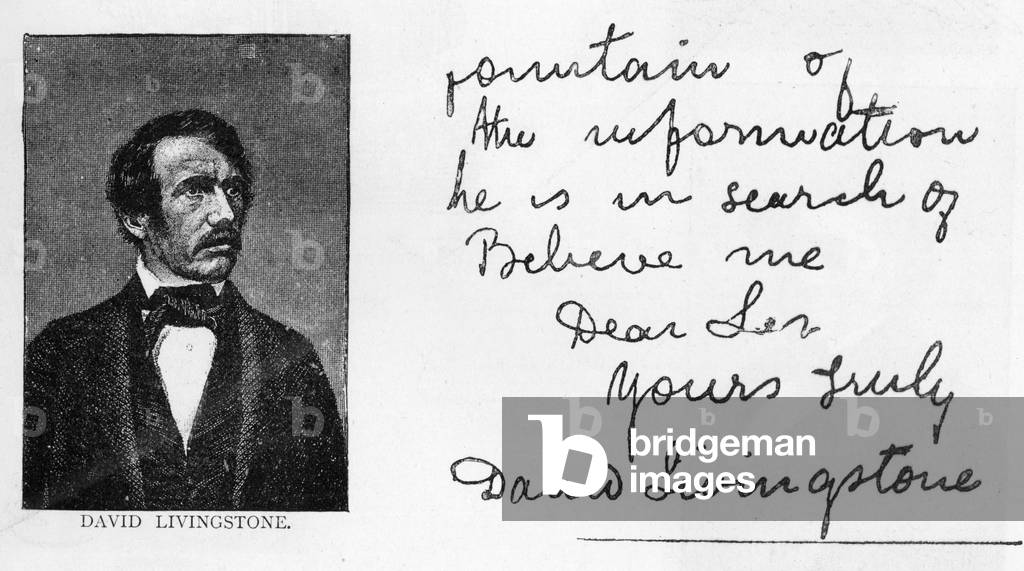 DAVID LIVINGSTONE.
fountain of
the information
he is in search of
Believe me
Dear Sir
Yours truly
David Livingstone
bridgeman
images